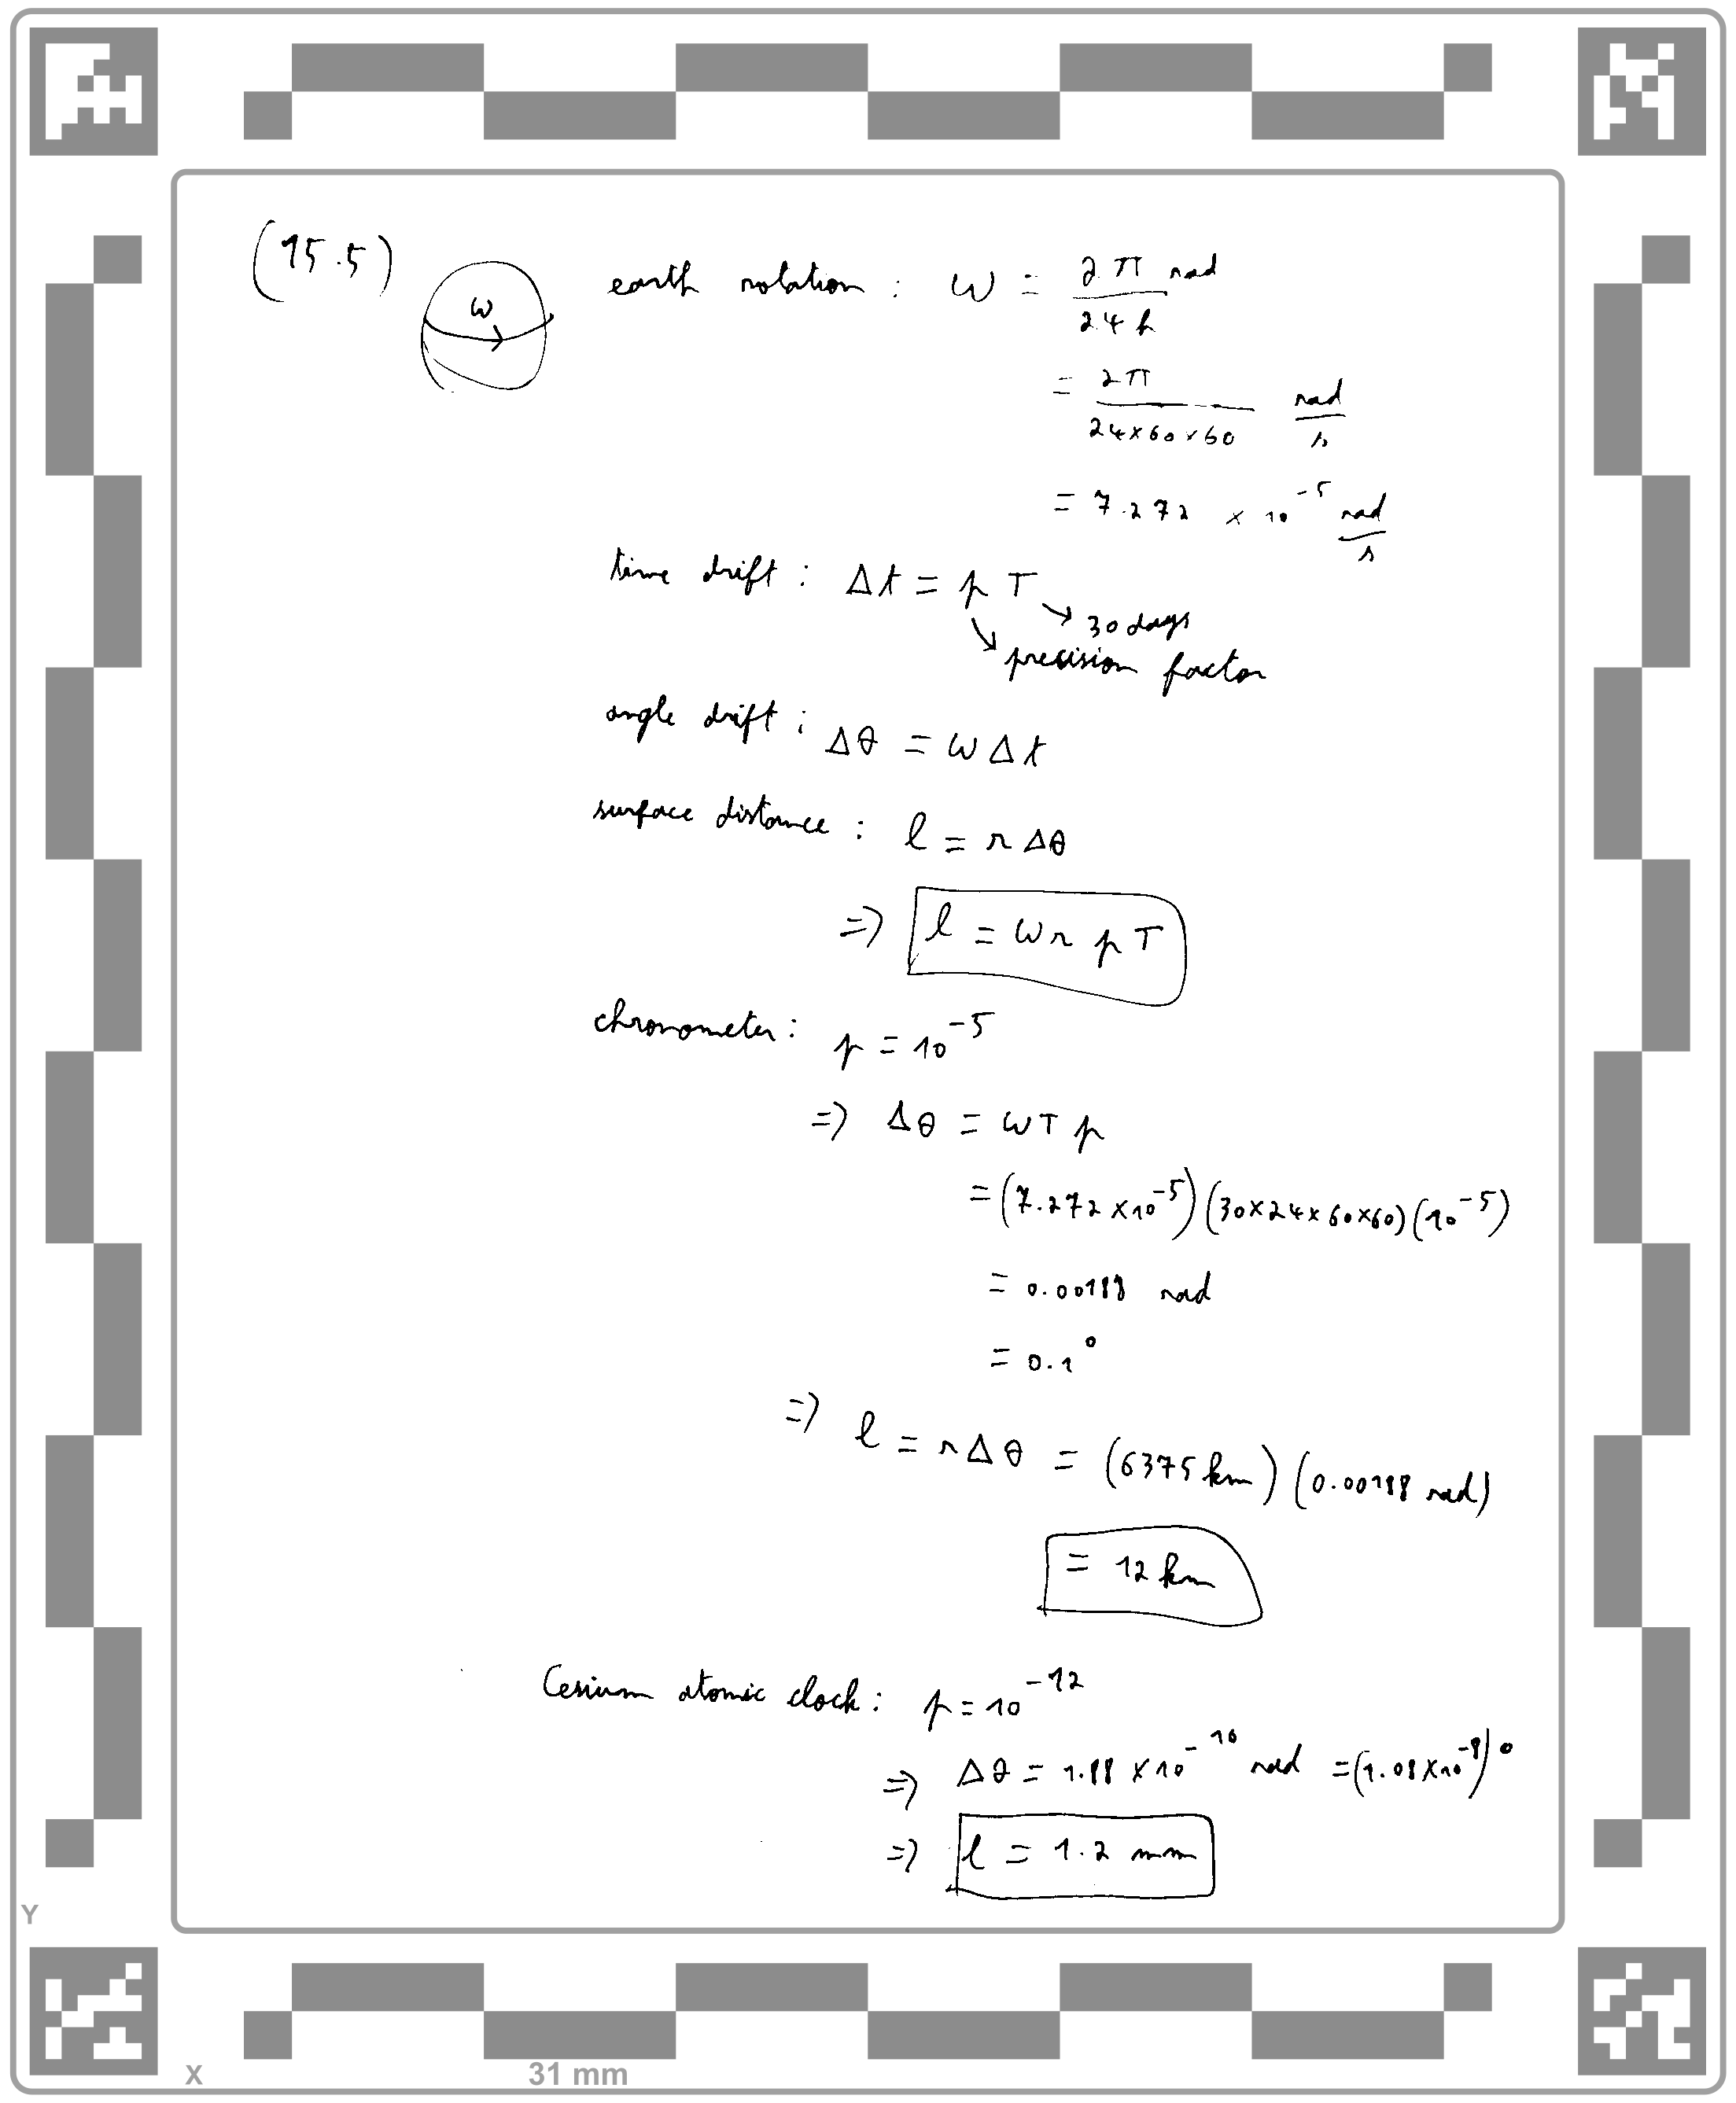 (15.5)
ω
earth rotation : ω = 2π rad / 24 h
= 2π / 24×60×60 rad/s
= 7.272 × 10^-5 rad/s
time drift : Δt = p T
→ 30 days
→ precision factor
angle drift : Δθ = ω Δt
surface distance : l = r Δθ
⇒ l = ω r p T
chronometer : p = 10^-5
⇒ Δθ = ω T p
= (7.272 × 10^-5) (30×24×60×60) (10^-5)
= 0.00188 rad
= 0.1°
⇒ l = r Δθ = (6375 km) (0.00188 rad)
= 12 km
Cesium atomic clock : p = 10^-12
⇒ Δθ = 1.88 × 10^-10 rad = (1.08 × 10^-8)°
⇒ l = 1.2 mm
Y
X
31 mm